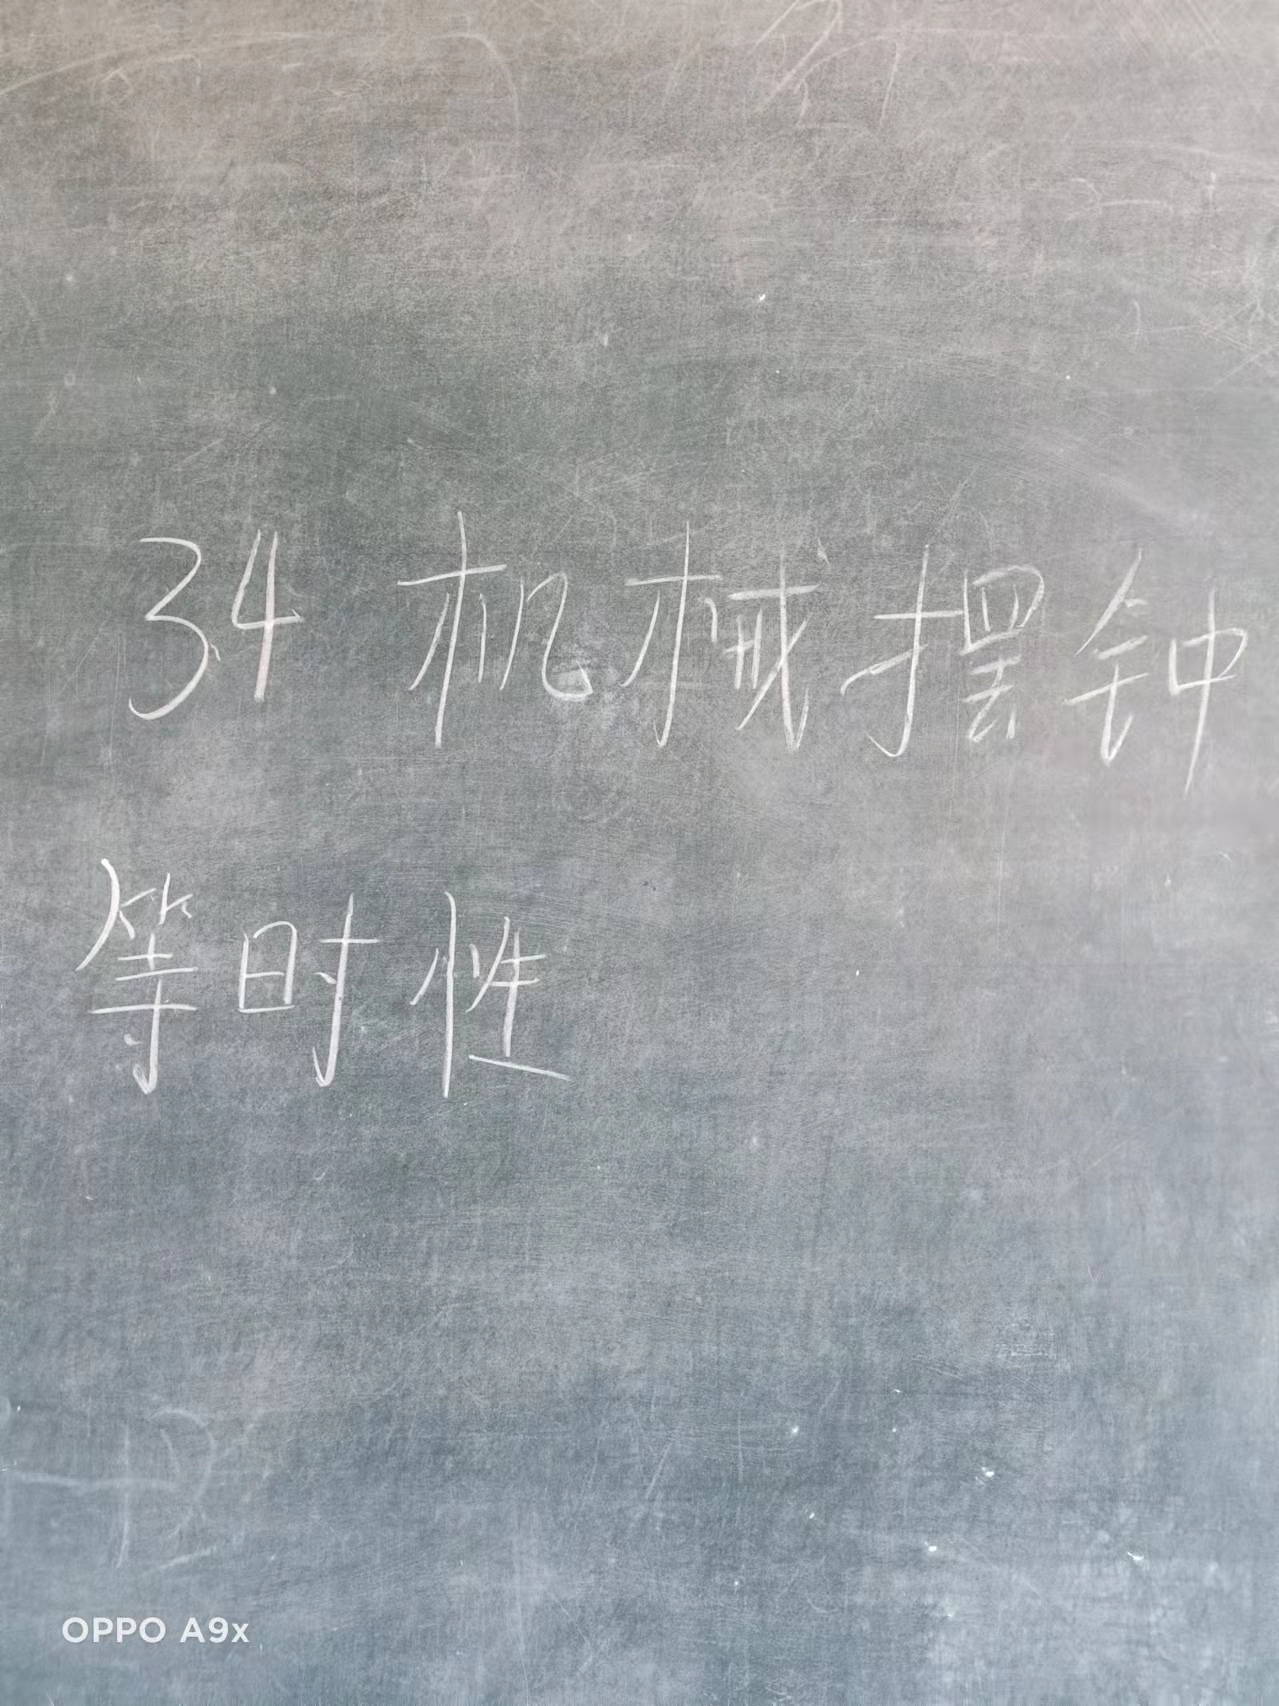 34 机械摆钟
等时性
OPPO A9x